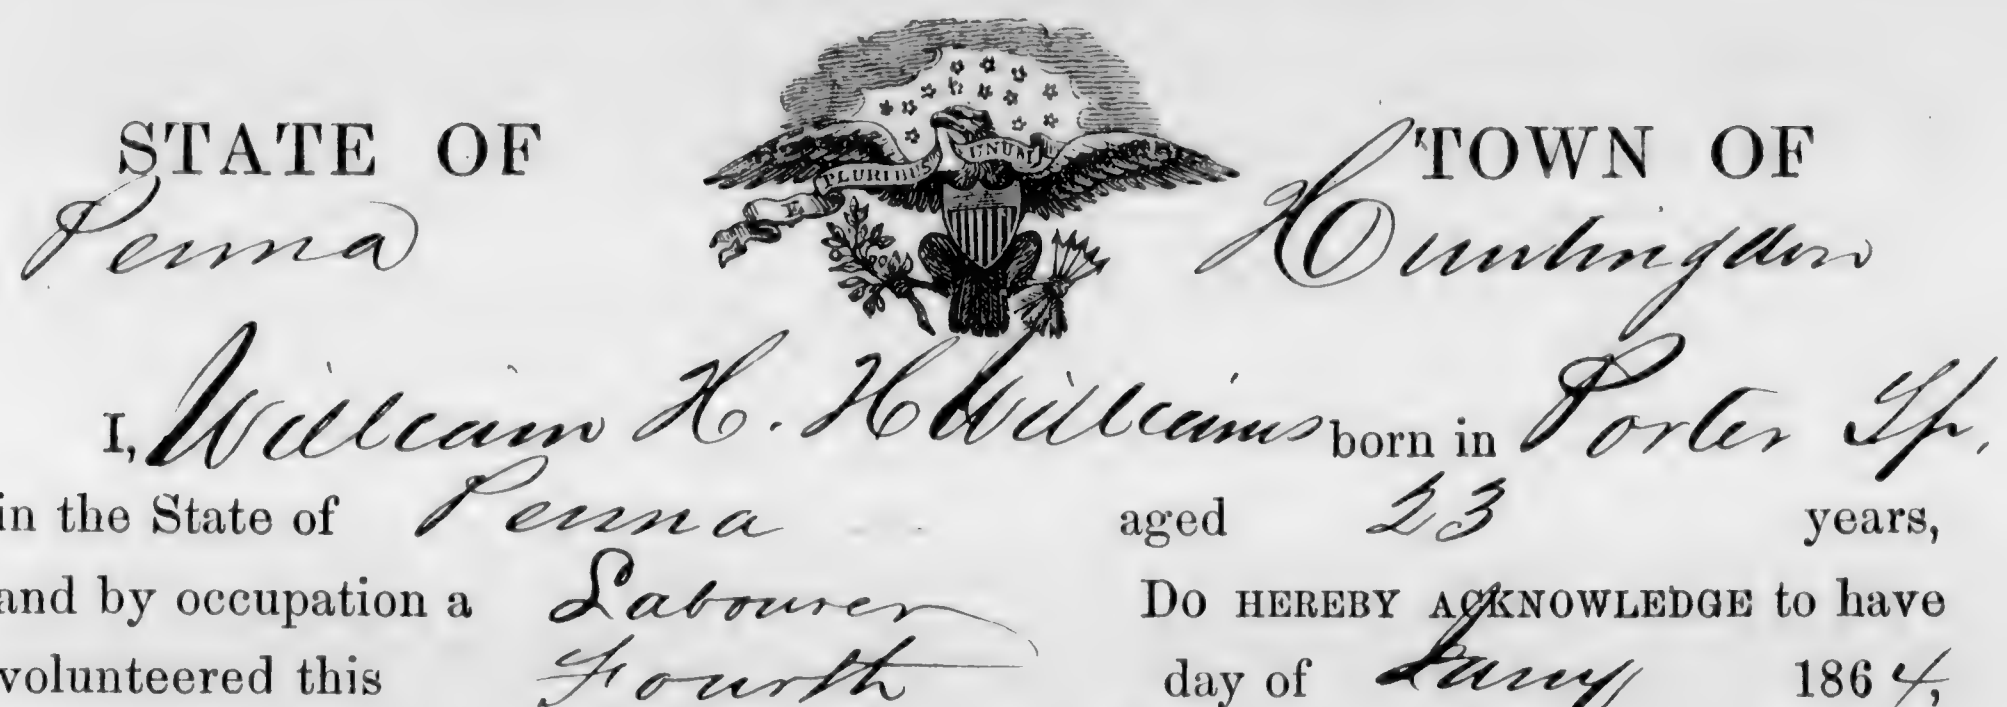 STATE OF
TOWN OF
E PLURIBUS UNUM
Penna
Huntingdon
I, William H. H Williams born in Porter Tp.
in the State of Penna aged 23 years,
and by occupation a Labourer Do HEREBY ACKNOWLEDGE to have
volunteered this Fourth day of Jany 1864,